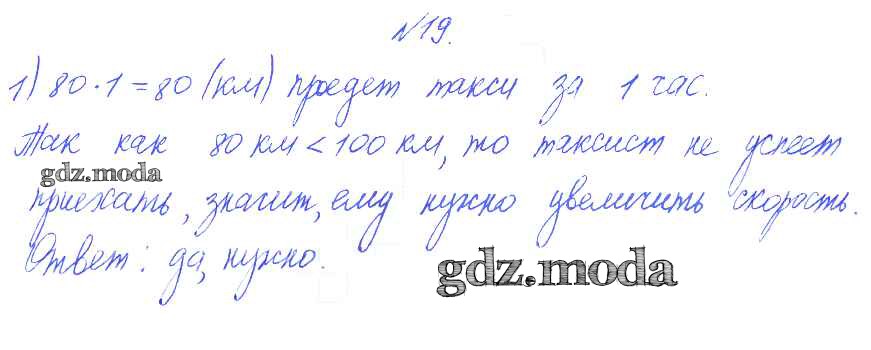 №19.
1) 80·1=80 (км) проедет такси за 1 час.
Так как 80 км < 100 км, то таксист не успеет
gdz.moda
приехать, значит, ему нужно увеличить скорость.
Ответ: да, нужно.
gdz.moda